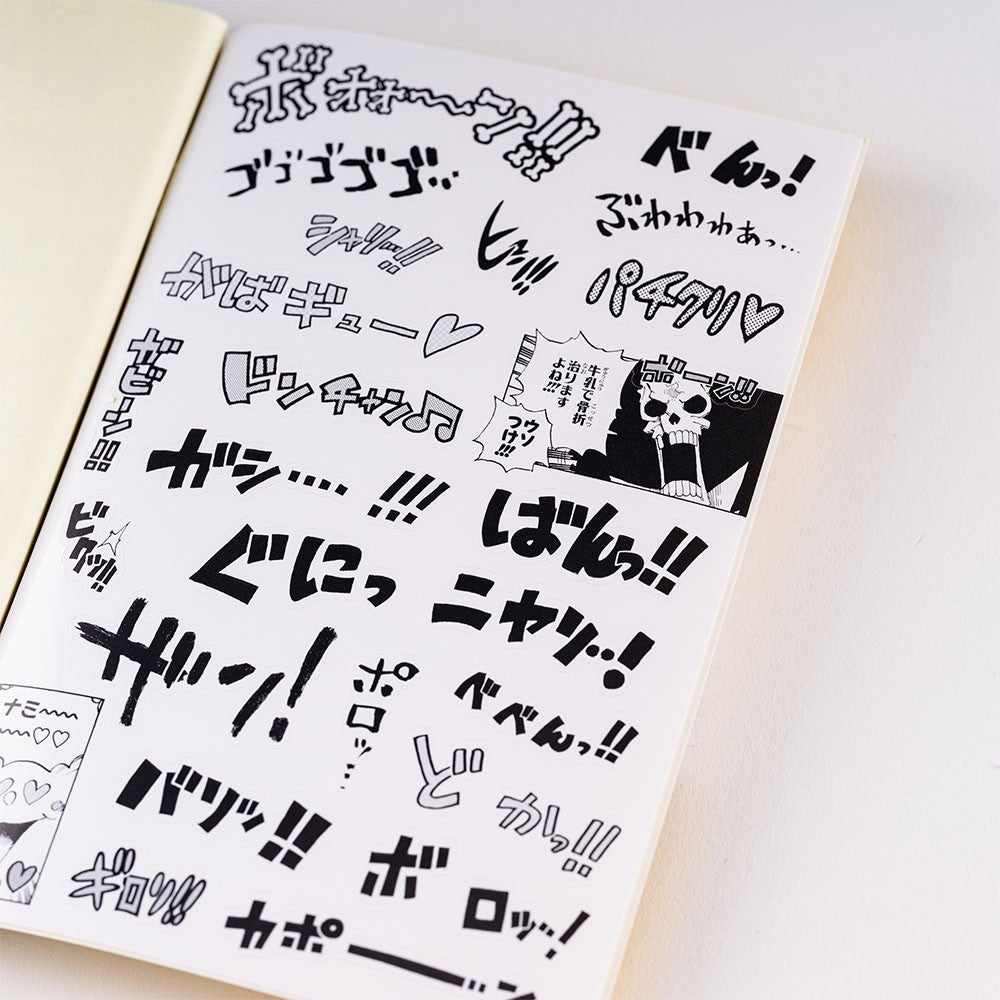 ボォォ～～ン!!
べんっ!
ゴゴゴゴゴ…
ぶわわわわぁっ…
シャリッ!!
ヒュン!!!
パチクリ♡
ずばギュー♡
ボーン!!
牛乳で骨折
ぎゅうにゅう
こっせつ
治ります
よね!!!
ウソ
つけ!!!
ジャンチャンチャン♪
ガシ…. !!!
ばんっ!!
ビクッ!!
ぐにっ
ニヤッ…!
ザンッ!
ポロッ…
べべんっ!!
ナミ～～
～～♡♡
ど
かっ!!
バリッ!!
ボ
ロッ…!
ギロッ!!!
カポーーン